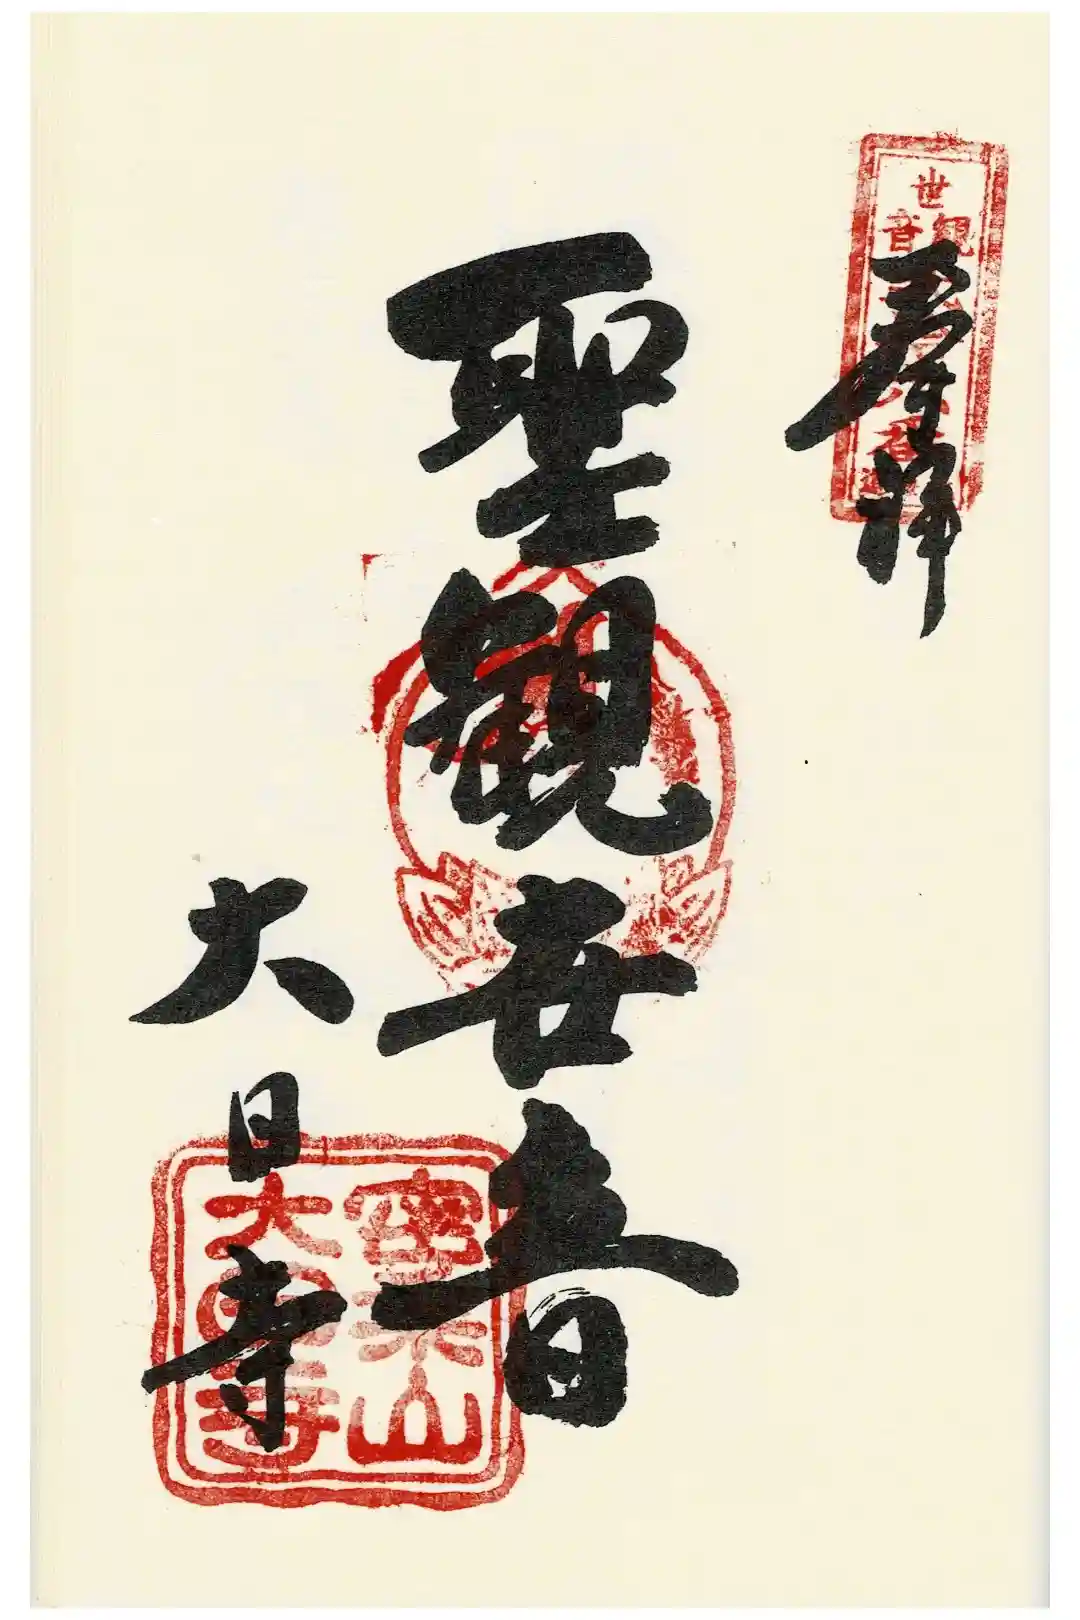 奉拝
聖観世音
大日寺
世
観音
大日寺